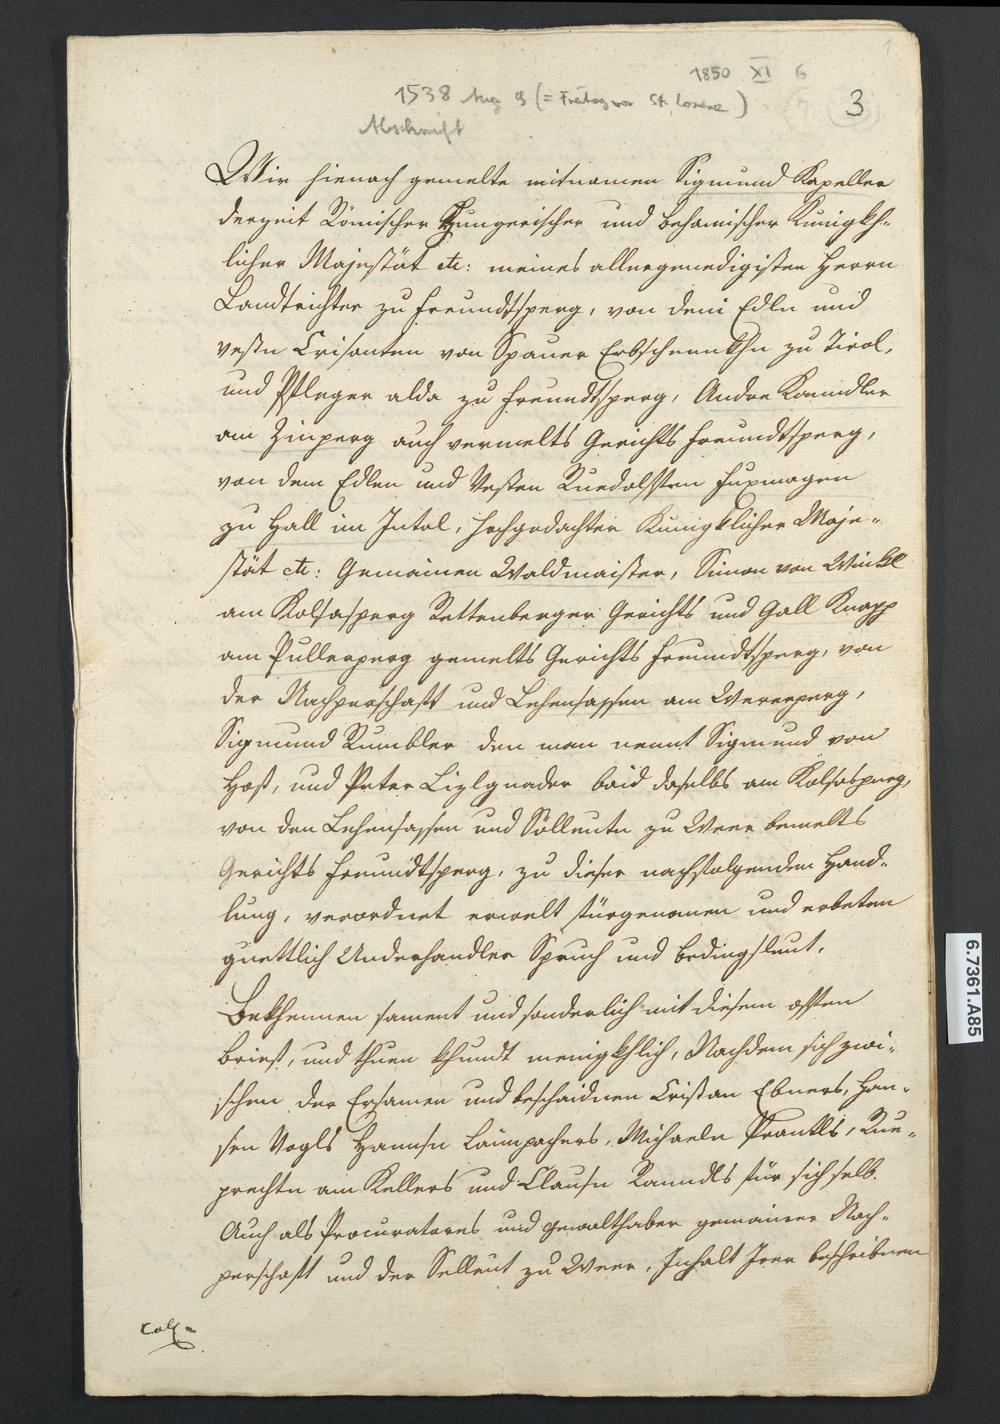 1
1850 XI 6
1538 Aug 9 (= Freitag vor St. Lorenz)
3
Abschrift
Wir hienach gemelte mitnamen Sigmund Kapeller
derzeit Römischer Hungerischer und Behamischer Kunigkh-
licher Majestät etc: meines allergenedigisten Herrn
Landtrichter zu Freundtsperg, von dem Edln und
vestn Crisanten von Spauer Erbschennkhn zu Tirol,
und Pfleger alda zu Freundtsperg, Andre Kanndler
am Zinperg auch vermelts Gerichts Freundtsperg,
von dem Edlen und Vesten Ruedolffen Fuxmagen
zu Hall im Intal, hochgedachter Kunigklicher Maje-
stät etc: Gemainen Waldmaister, Simon von Winkl
am Kolsasperg Rettenberger Gerichts und Gall Knapp
am Pullerperg gemelts Gerichts Freundtsperg, von
der Nachperschafft und Lehensassen am Wererperg,
Sigmund Rumbler den man nennt Sigmund von
Host, und Peter Lizlgnader baid daselbs am Kolsasperg,
von den Lehensassen und Söllente zu Weer bemelts
Gerichts Freundtsperg, zu dieser nachfolgendem Hand-
lung, verordnet erwelt fürgenomen und erbeten
guettlich Underhandler Spruch und Bedingsleut.
Bekhennen sament und sonderlich mit diesem offen
Brieff, und thuen khundt menigkhlich, Nachdem sich zwi-
schen der Ersamen und bescheidnen Cristan Ebners, Han-
sen Vogls Hannsn Laimpachers, Michaeln Prantls, Rue-
prechtn am Kellers und Clausn Ranndls für sich selb.
Auch als Procuratores und gewalthaber gemainer Nach-
perschafft und der Selleut zu Weer, Inhalt Irer beschribnen
6.7361.A85